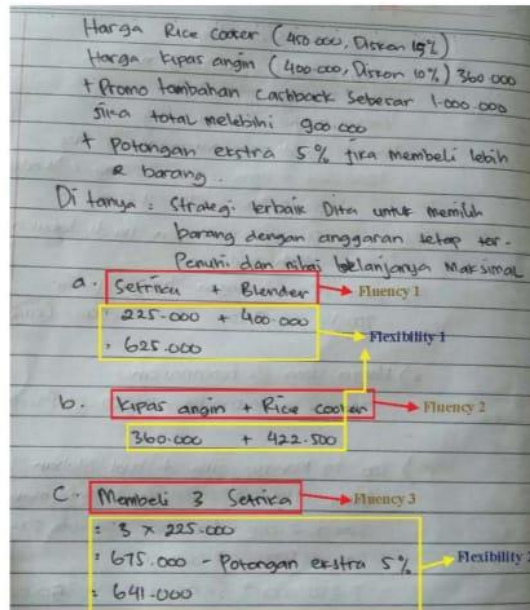 Harga Rice cooker (450.000, Diskon 15%)
Harga Kipas angin (400.000, Diskon 10%) 360.000
+ Promo tambahan cashback sebesar 1.000.000
jika total melebihi 900.000
+ Potongan ekstra 5% jika membeli lebih
2 barang.
Di tanya : Strategi terbaik Dita untuk memilih
barang dengan anggaran tetap ter-
Penuhi dan nilai belanjanya Maksimal
a. Setrika + Blender Fluency 1
: 225.000 + 400.000
: 625.000 Flexibility 1
b. Kipas angin + Rice cooker Fluency 2
360.000 + 422.500
C. Membeli 3 Setrika Fluency 3
: 3 x 225.000
: 675.000 - Potongan ekstra 5% Flexibility 2
: 641.000